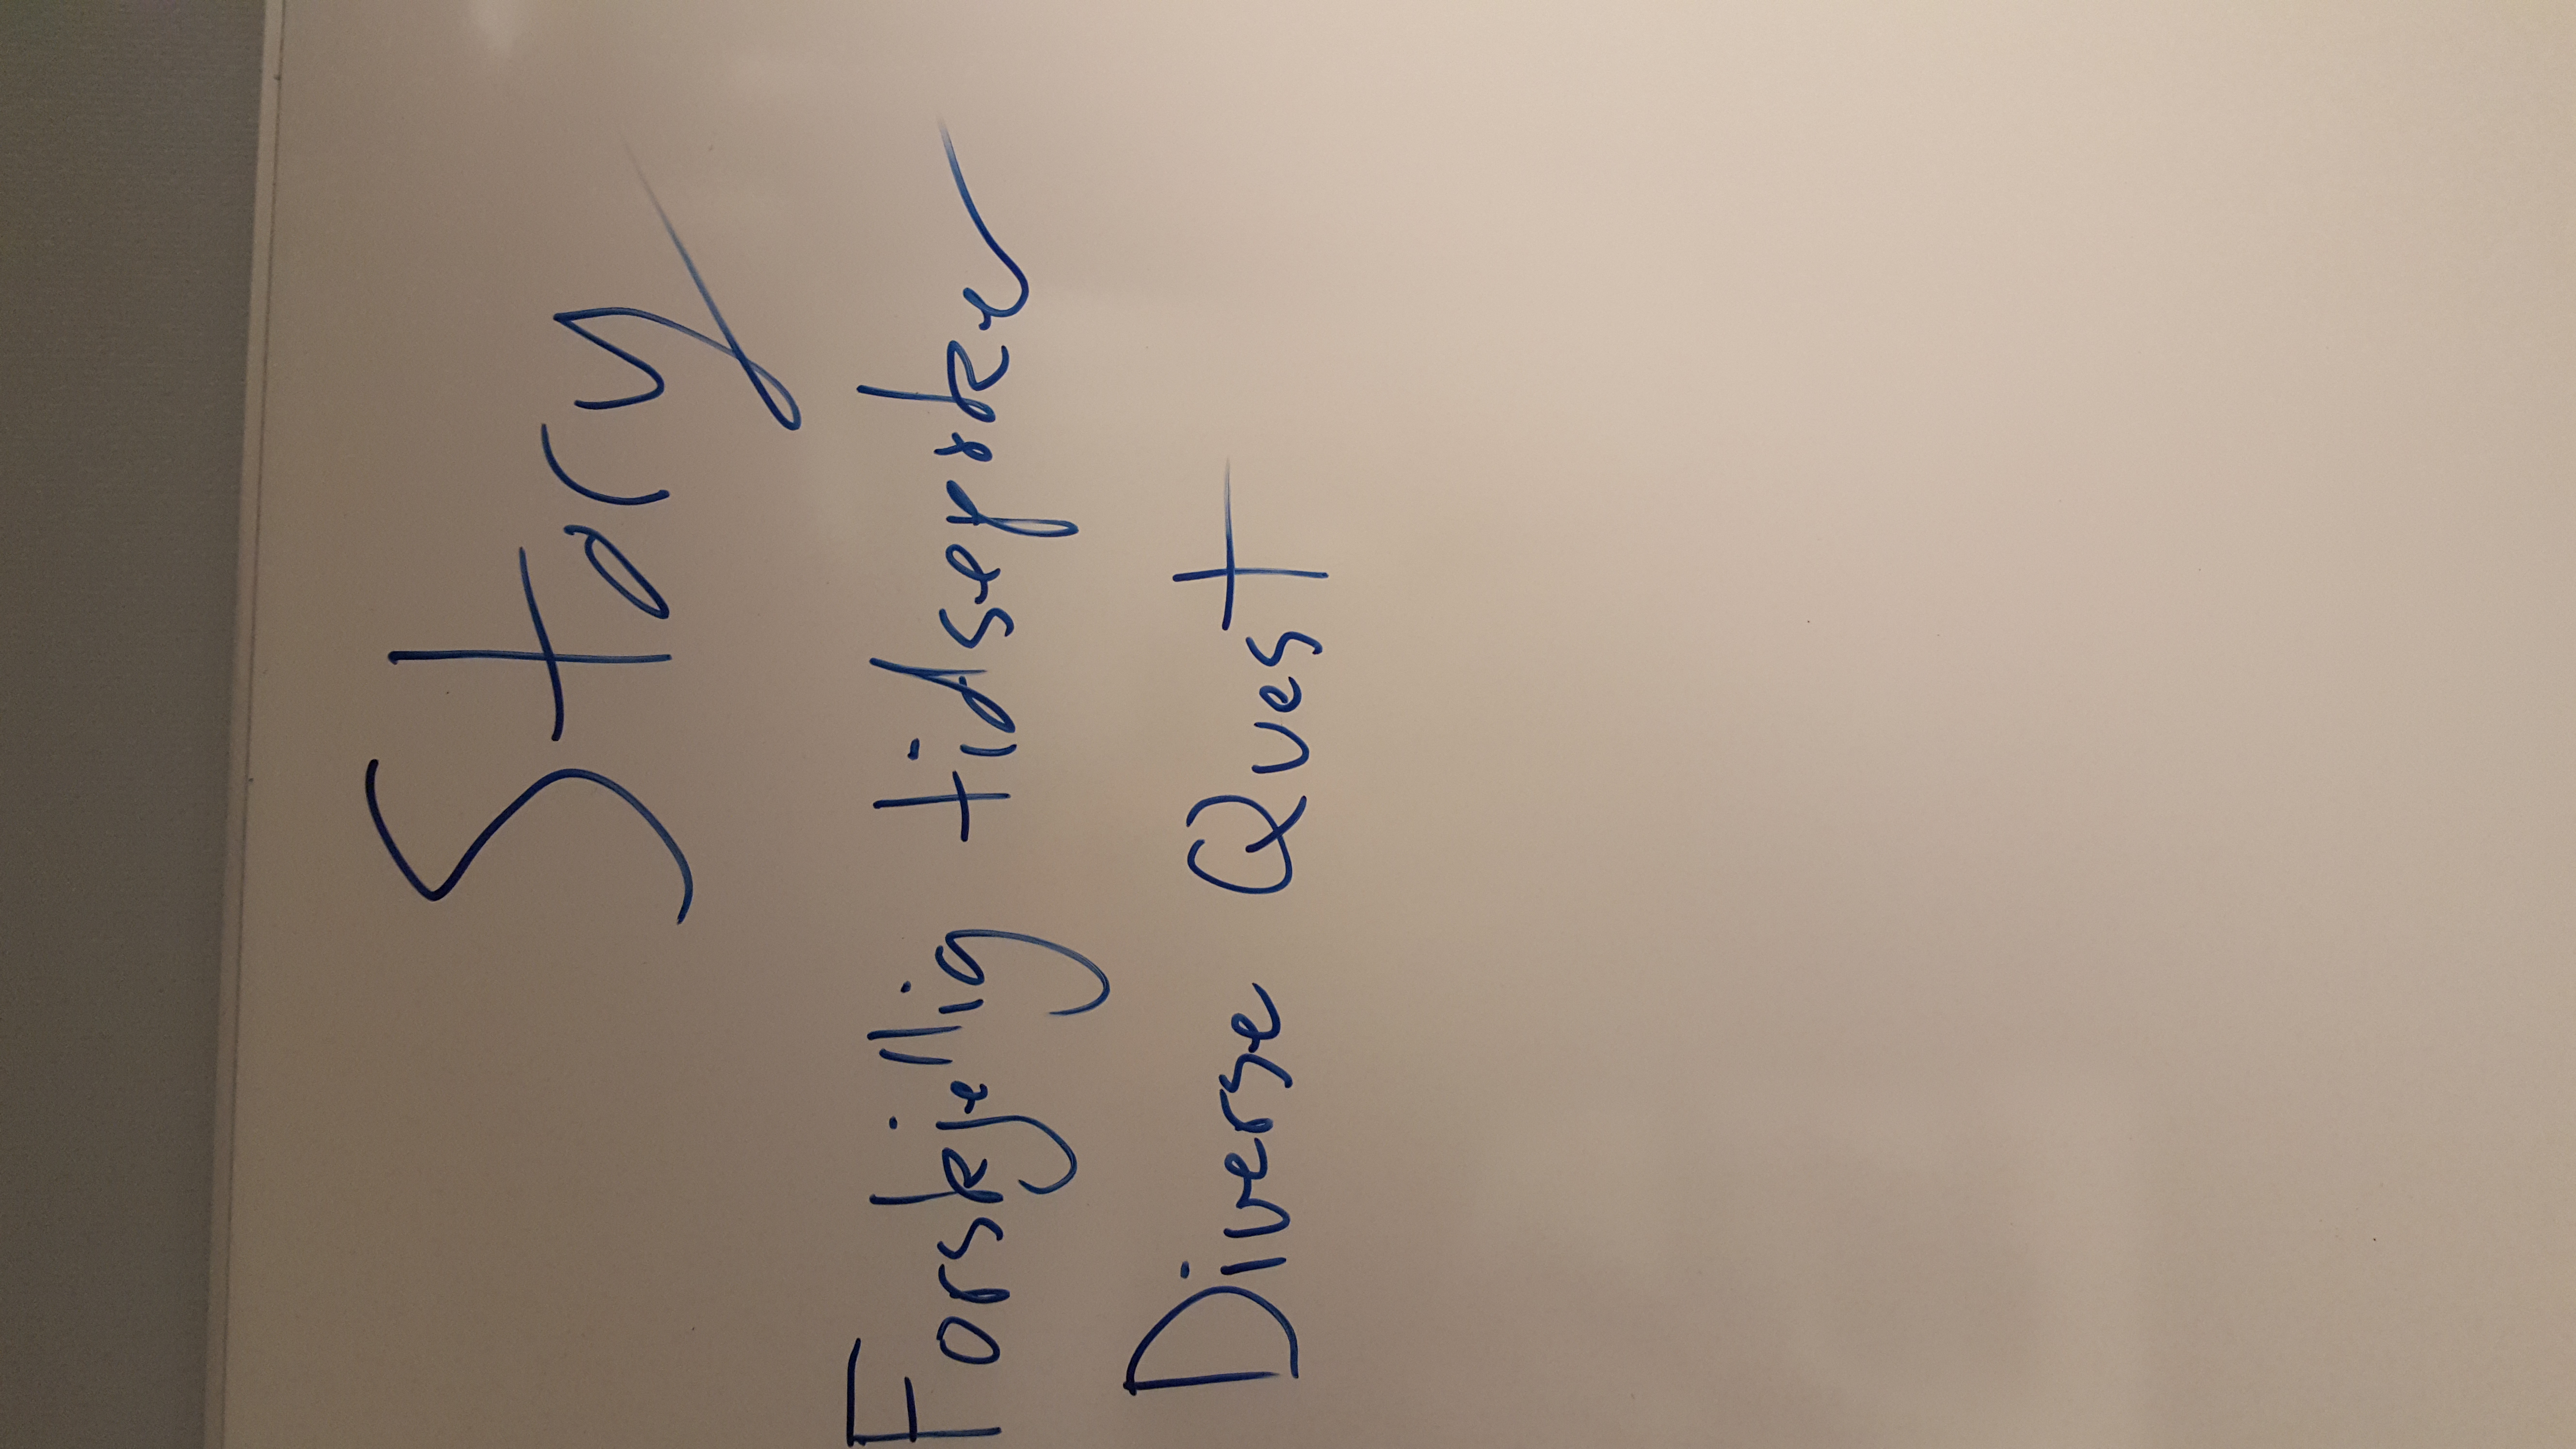 Story
Forskjellig tidsepoker
Diverse Quest